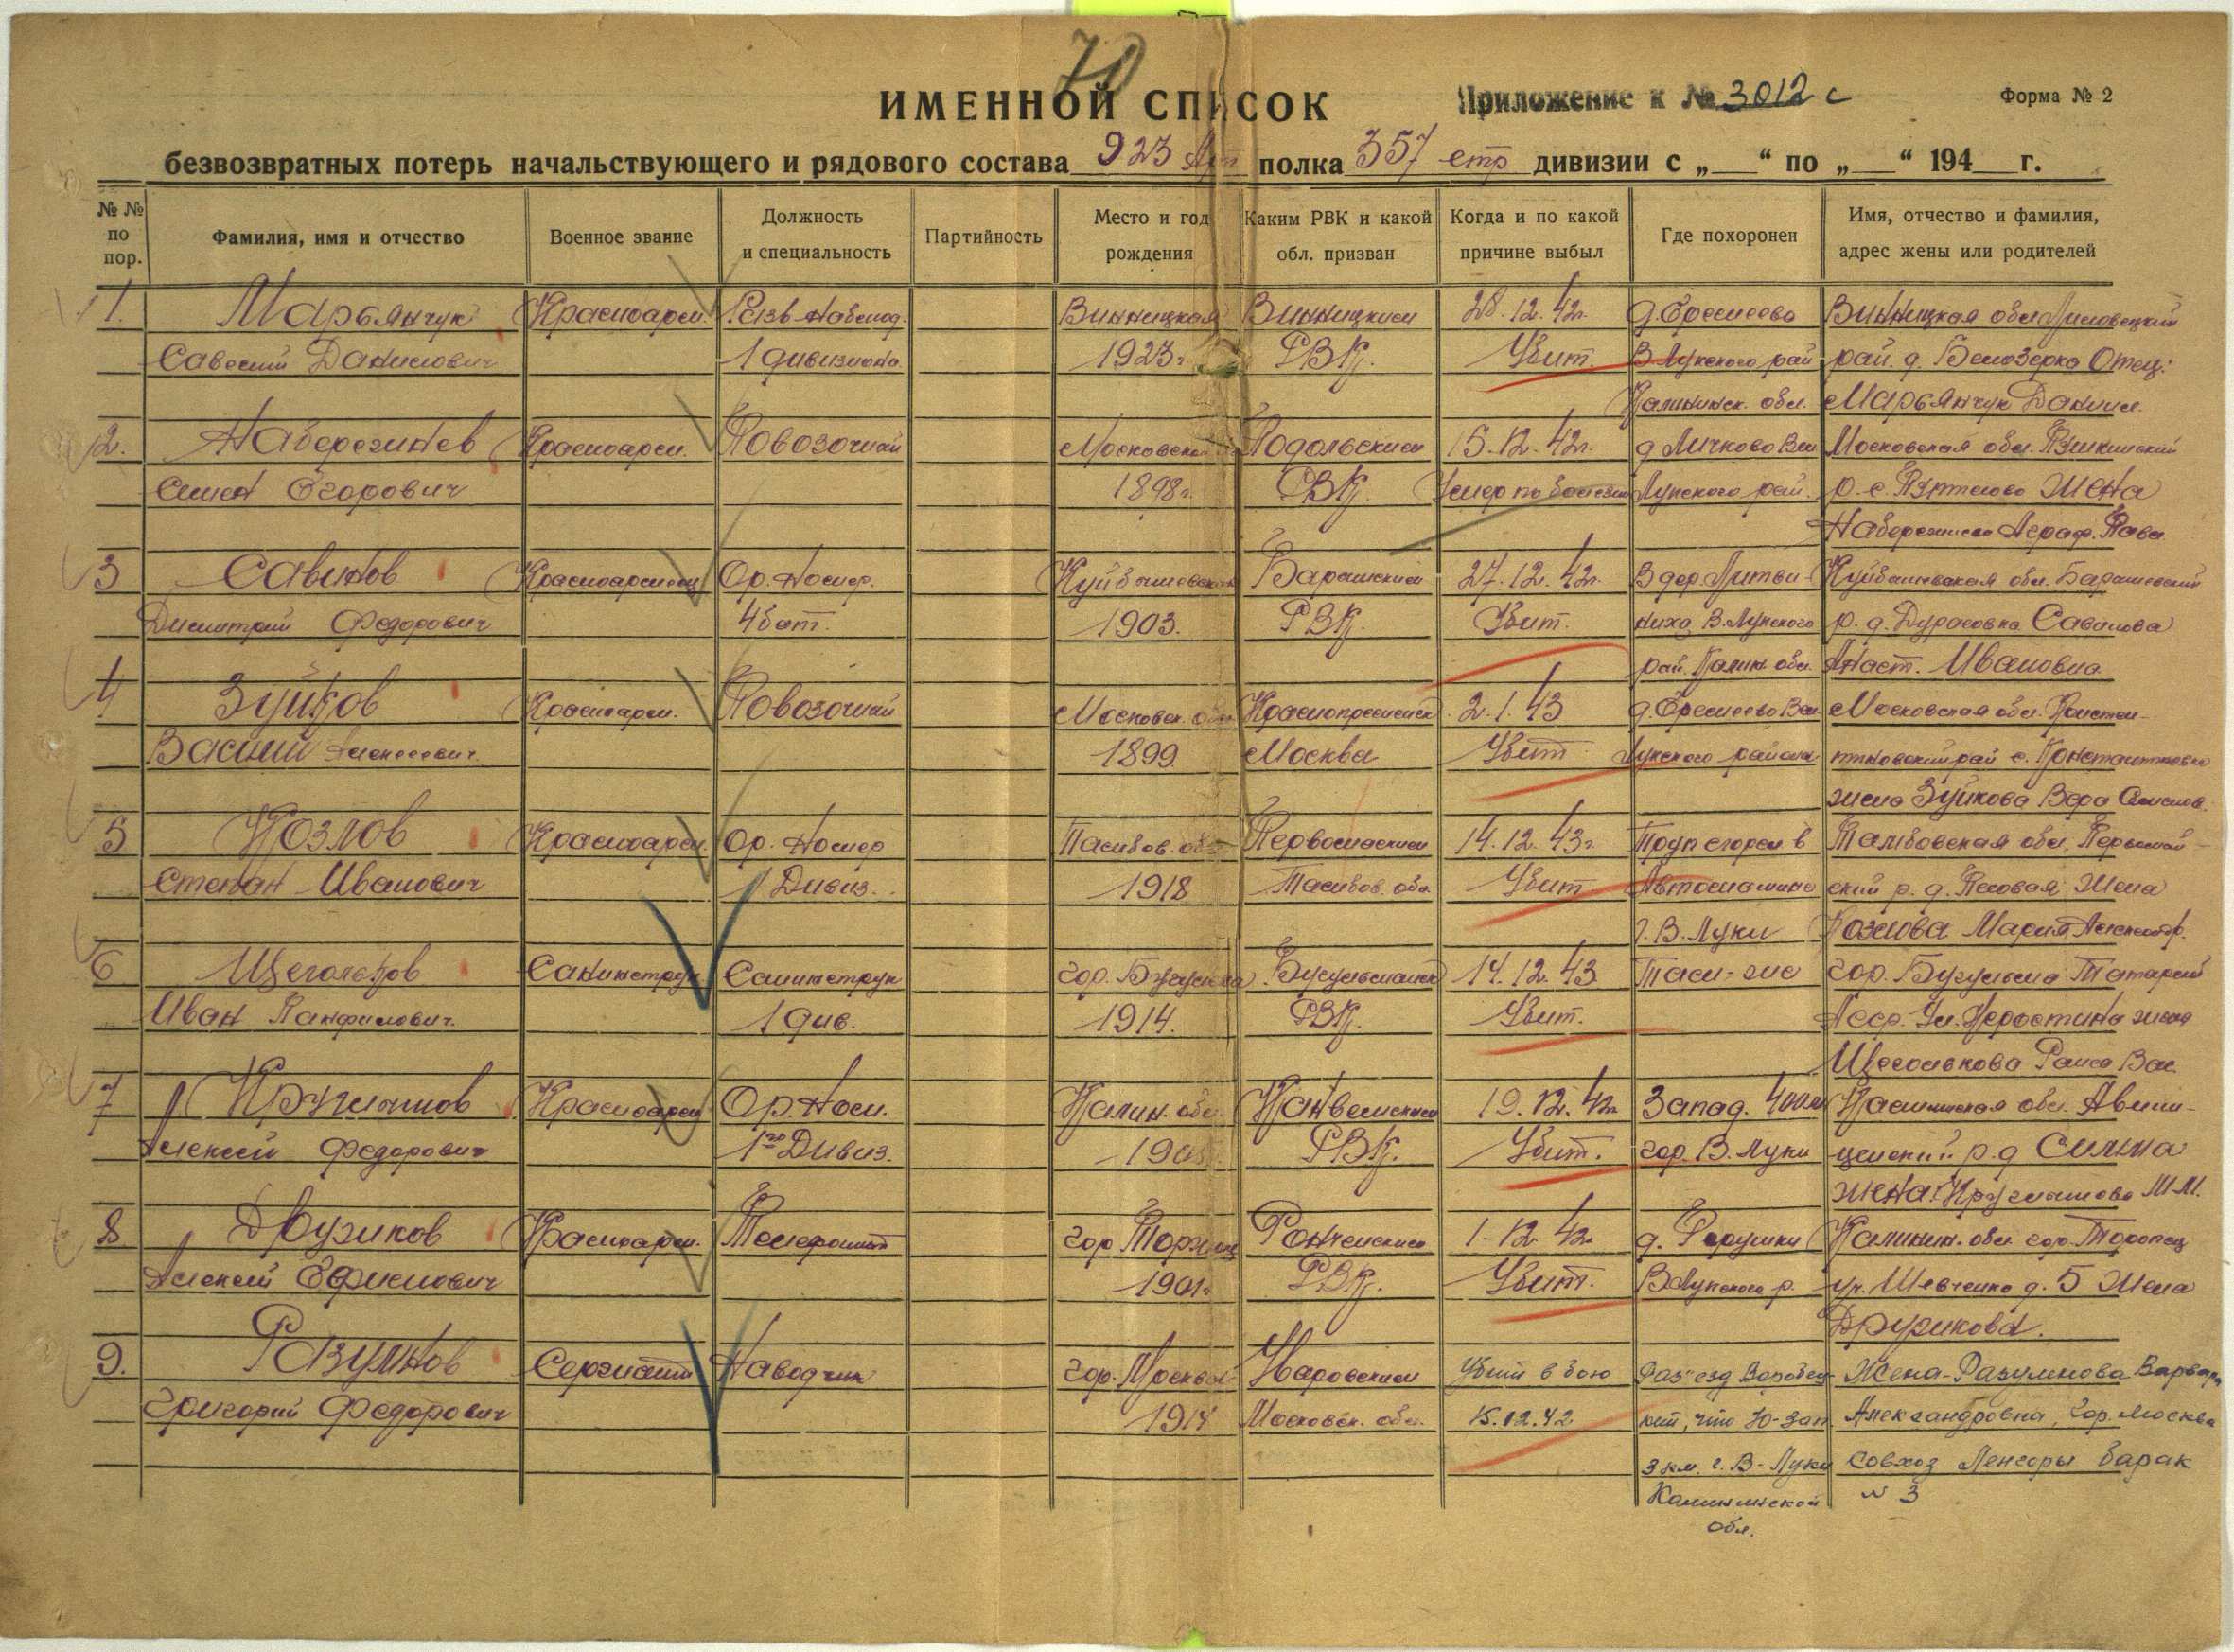 70
ИМЕННОЙ СПИСОК
Приложение к № 3012 с
Форма № 2
безвозвратных потерь начальствующего и рядового состава 923 Арт полка 357 стр дивизии с „ “ по „ “ 194 г.
№ № по пор.
Фамилия, имя и отчество
Военное звание
Должность и специальность
Партийность
Место и год рождения
Каким РВК и какой обл. призван
Когда и по какой причине выбыл
Где похоронен
Имя, отчество и фамилия, адрес жены или родителей
1. Марьянчук Красноарм. Разв-наблюд. Винницкая Винницким 28.12.42г. д. Еремеево Винницкая обл.
Савелий Данилович 1 дивизиона 1923г. РВК. Убит. В Лукского рай рай. д. Белозерка Отец:
Калининск. обл. Марьянчук Данил.
2. Набережнев Красноарм. Повозочный Московская Подольским 15.12.42г. Московская обл. Пушкинский
Семен Егорович 1898г. РВК. Умер по болезни Лукского рай. р. с. Жена
3 Савинов Красноармеец Ор. Номер. Куйбышевская 27.12.42г. В дер. Литви- Куйбышевская обл.
Дмитрий Федорович 4 бат. 1903. РВК. Убит. ниха В.Лукского р. д. Дурасовка Савинова
рай. Калин. обл. Анаст. Ивановна
4 Зуйков Красноарм. Повозочный Московск. обл. Краснопресненск. 2.1.43 д. Еремеево Вел. Московская обл. Констан-
Василий Алексеевич. 1899 Москва Убит Лукского района тиновский рай с. Константиновка
жена Зуйкова Вера Семенов.
5 Козлов Красноарм. Ор. Номер Тамбов. обл. Первомайским 14.12.43г. Труп сгорел в Тамбовская обл. Первомай-
Степан Иванович 1 Дивиз. 1918 Тамбов. обл. Убит Автомашине ский р. д. Жена
г. В. Луки Козлова Мария Александр.
6 Щегольков Санинструк Санинструк гор. Бугульма Бугульманск 14.12.43 Там-же гор. Бугульма Татарской
Иван Панфилович. 1 див. 1914. РВК. Убит. Асср. Ул. жена
Щеголькова Раиса Вас.
7 Красноарм Ор. Ном. Калин. обл. 19.12.42г. Запад. 400м Калининская обл.
Алексей Федорович 1го Дивиз. РВК. Убит. гор. В. Луки р. д
жена: М.М.
8 Друзиков Красноарм. Телефонист гор. Торопец 1.12.42г. д. Калинин. обл. гор. Торопец
Алексей Ефимович 1901г. РВК. Убит. В Лукского р. ул. Шевченко д. 5 Жена
Друзикова.
9. Разумнов Сержант Наводчик гор. Москва Уваровским Убит в бою Раз'езд Воробец- Жена-Разумнова Варвара
Григорий Федорович 1914 Московск. обл. 15.12.42 кий, что Ю-зап. Александровна, гор. Москва
3 км. г. В-Луки совхоз Ленгоры барак
Калининской № 3
обл.